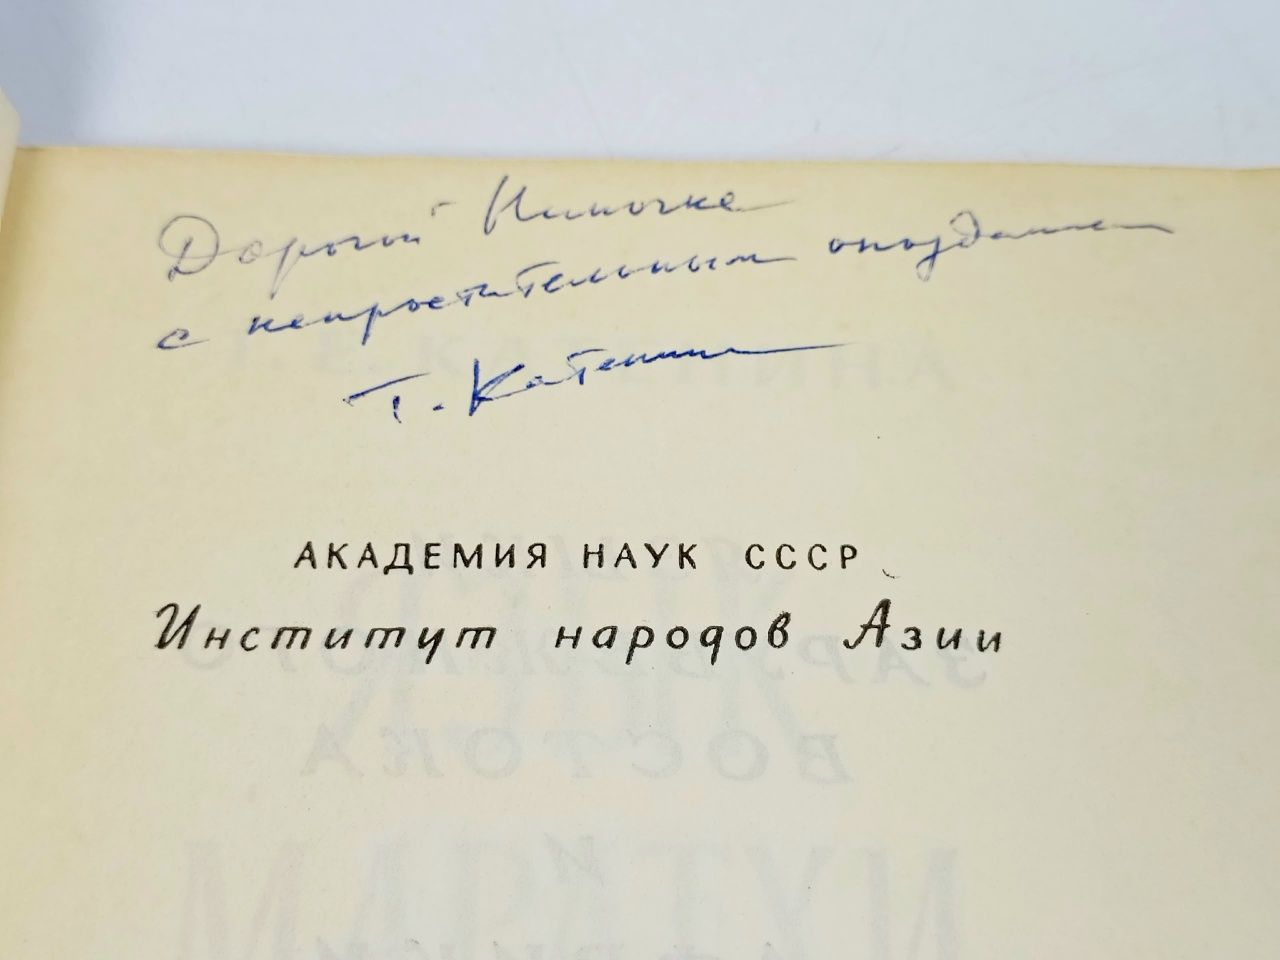 Дорогой Ниночке
с непростительным опозданием
Т. Катенина
АКАДЕМИЯ НАУК СССР
Институт народов Азии